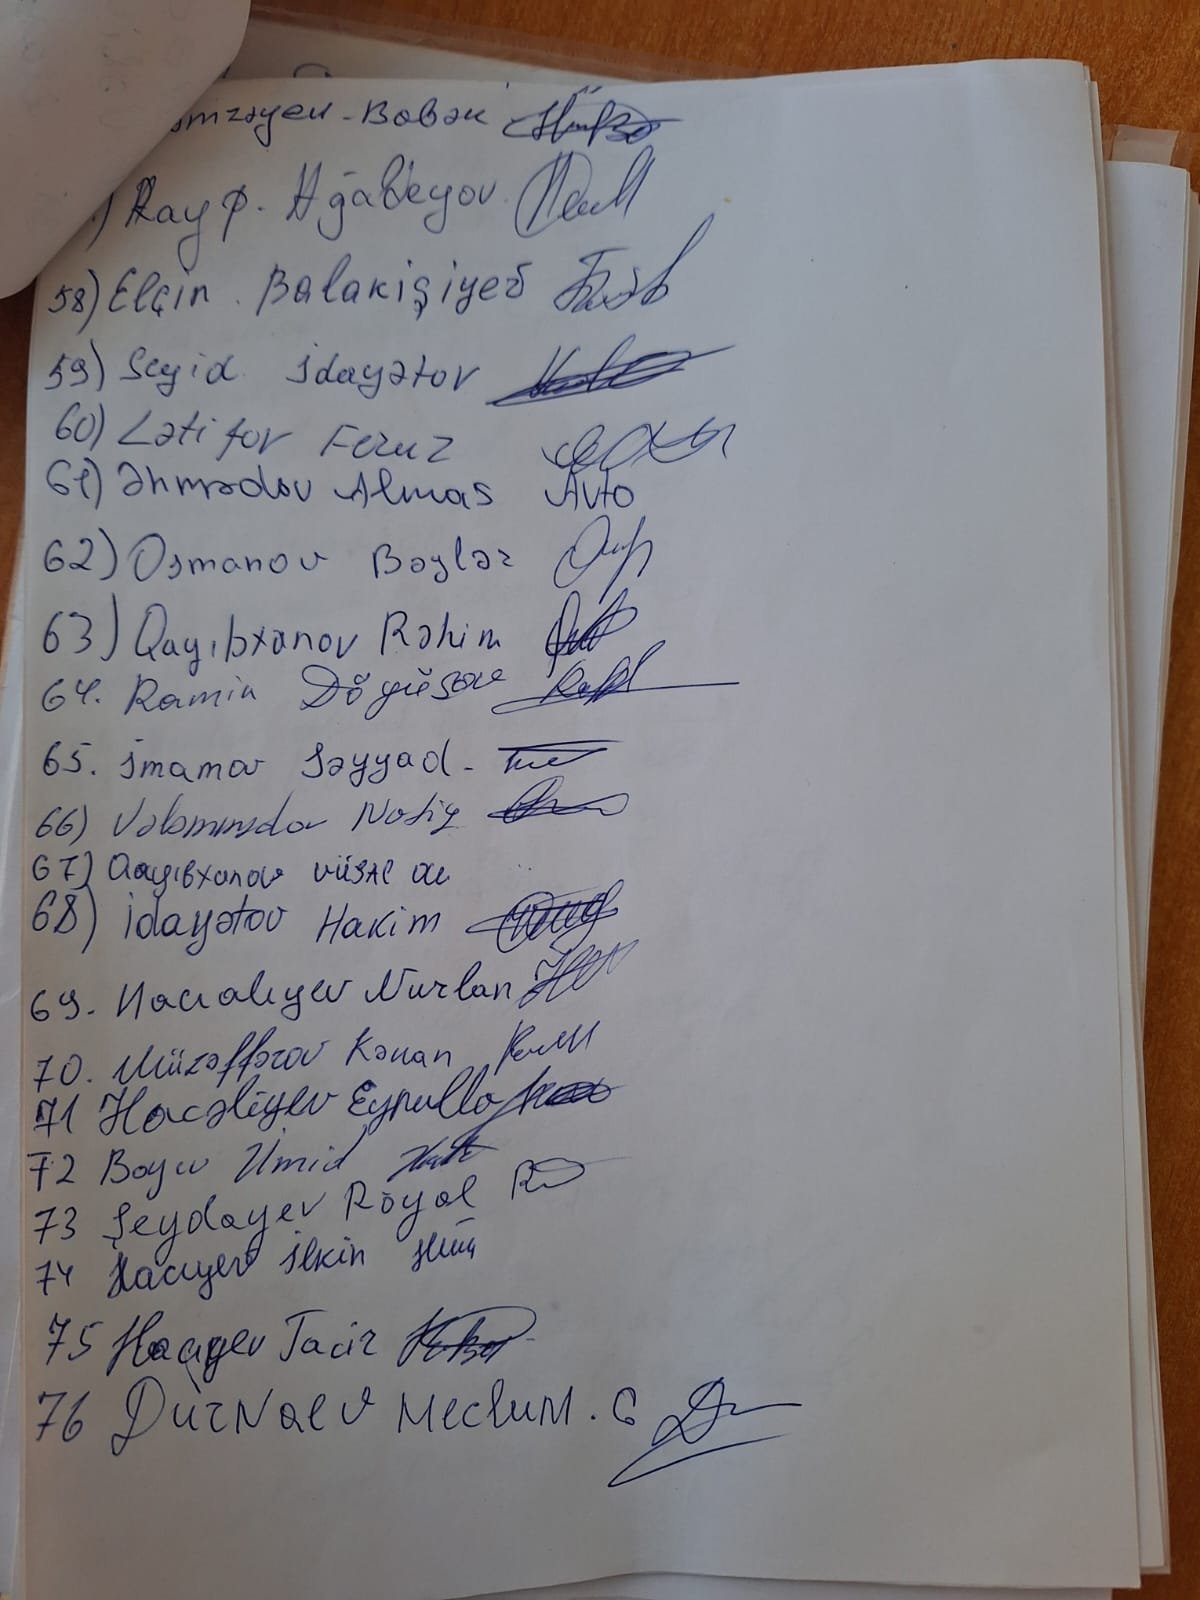 əmzəyev - Babək
) Rauf. Ağabeyov
58) Elçin. Balakişiyev
59) Seyid İdayətov
60) Lətifov Feruz
61) Əhmədov Almas Avto
62) Osmanov Bəylər
63) Qayıbxanov Rəhim
64. Ramin
65. İmamov Səyyad -
66)
67) Qayıbxanov vüsal
68) İdayətov Hakim
69. Hacıalıyev Nurlan
70. Müzəffərov Kənan
71 Hacəliyev Eynulla
72 Ümid
73 Şeydayev Röyal
74 Hacıyev İlkin
75 Hacıyev Tacir
76 DürNaev MecluM. G